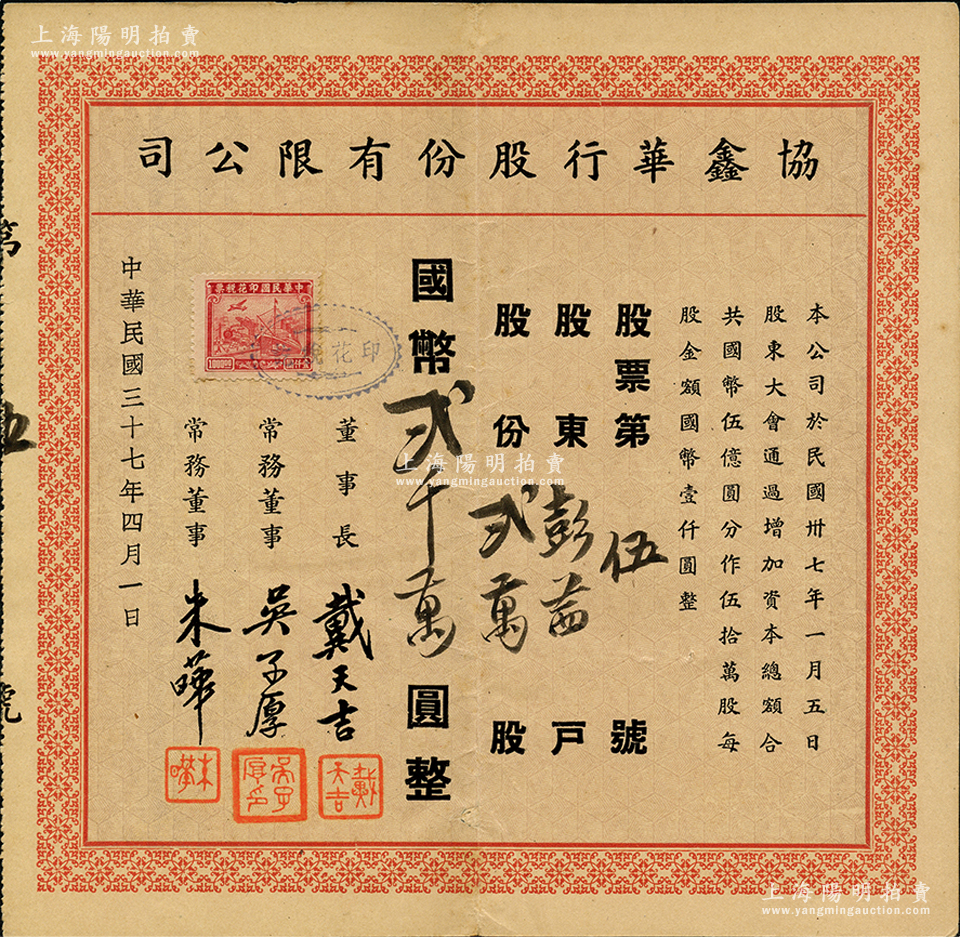 上海陽明拍賣
www.yangmingauction.com
協鑫華行股份有限公司
本公司於民國卅七年一月五日
股東大會通過增加資本總額合
共國幣伍億圓分作伍拾萬股每
股金額國幣壹仟圓整
股票第伍號
股東彭益戶
股份弍萬股
國幣弍千萬圓整
中華民國印花稅票
印花稅
董事長戴天吉
常務董事吳子厚
常務董事朱曄
戴天吉
吳子厚印
中華民國三十七年四月一日
第
伍
號
上海陽明拍賣
www.yangmingauction.com
上海陽明拍賣
www.yangmingauction.com